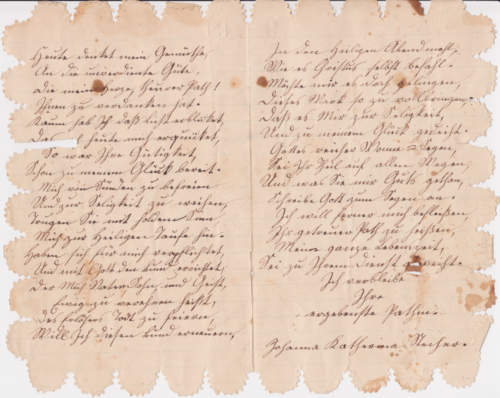 Heute denket mein Gemüthe,
An die unverdiente Güte,
Die mein Herze, theurer Path!
Ihnen zu verdanken hat.
Kaum hab Ich das Licht erblicket,
Das heute mich erquicket,
So war Ihre Gütigkeit,
Schon zu meinem Glück bereit.
Mich von Sünden zu befreien
Und zur Seligkeit zu weihen,
Trugen Sie mit holdem Sinn
Mich zur Heiligen Taufe hin.
Haben sich für mich verpflichtet,
Und mit Gott den Bund errichtet,
Der Mich Vater, Sohn, und Geist,
Ewig zu verehren heißt,
Des Erlösers Todt zu feiern,
Will Ich diesen Bund erneuern,
In dem Heiligen Abendmahl,
Wie es Christus selbst befahl.
Möchte mir es doch gelingen,
Dieses Werk so zu vollbringen,
Daß es Mir zur Seligkeit,
Und zu meinem Glück gedeiht.
Gottes reicher Wonne Segen,
Sei Ihr Theil auf allen Wegen,
Und was Sie mir Guts gethan,
Schreibe Gott zum Segen an.
Ich will ferner mich befleißen,
Ihr getreuer Path zu heißen,
Meine ganze Lebenszeit,
Sei zu Ihrem Dienst
Ich verbleibe
Ihre
ergebenste Pathin.
Johanna Katherina